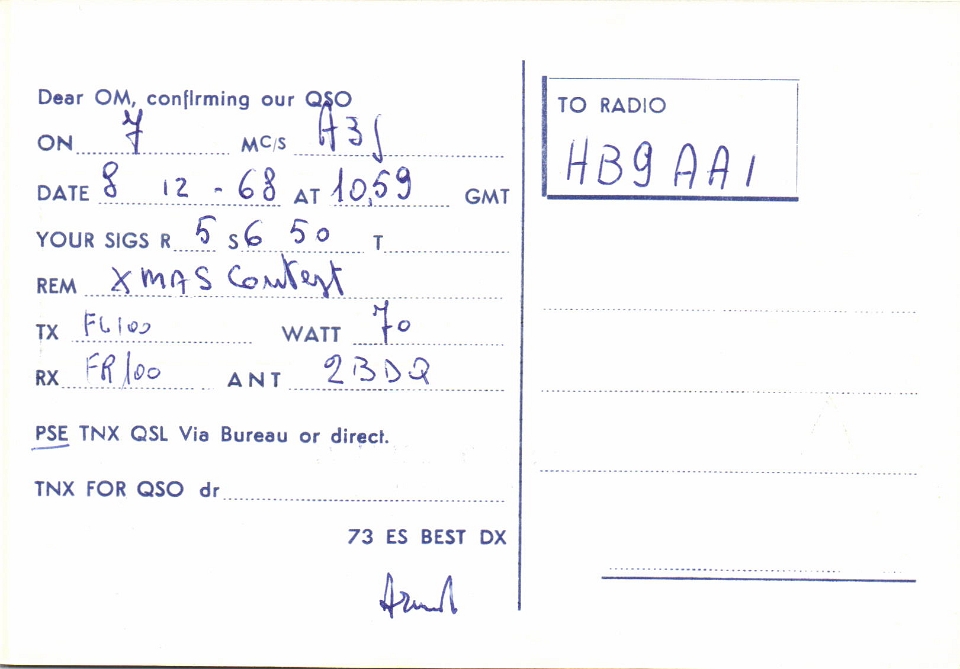 Dear OM, confirming our QSO
ON 7 MC/S A3J
DATE 8 12 - 68 AT 10,59 GMT
YOUR SIGS R 5 S 6 50 T
REM XMAS Contest
TX FL100 WATT 70
RX FR100 ANT 2BDQ
PSE TNX QSL Via Bureau or direct.
TNX FOR QSO dr
73 ES BEST DX
TO RADIO
HB9AAI